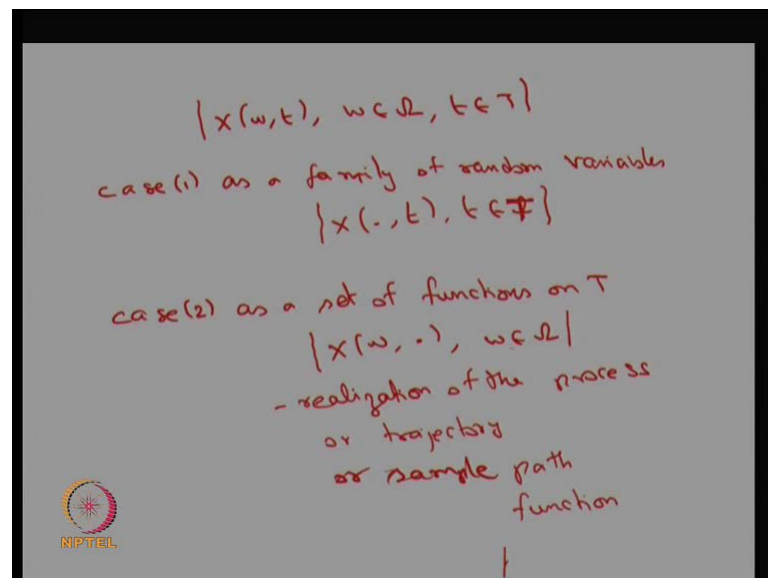 {x(w,t), w ∈ Ω, t ∈ T}
case(1) as a family of random variables
{x(.,t), t ∈ T}
case(2) as a set of functions on T
{x(w,.), w ∈ Ω}
- realization of the process
or trajectory
or sample path
function
NPTEL